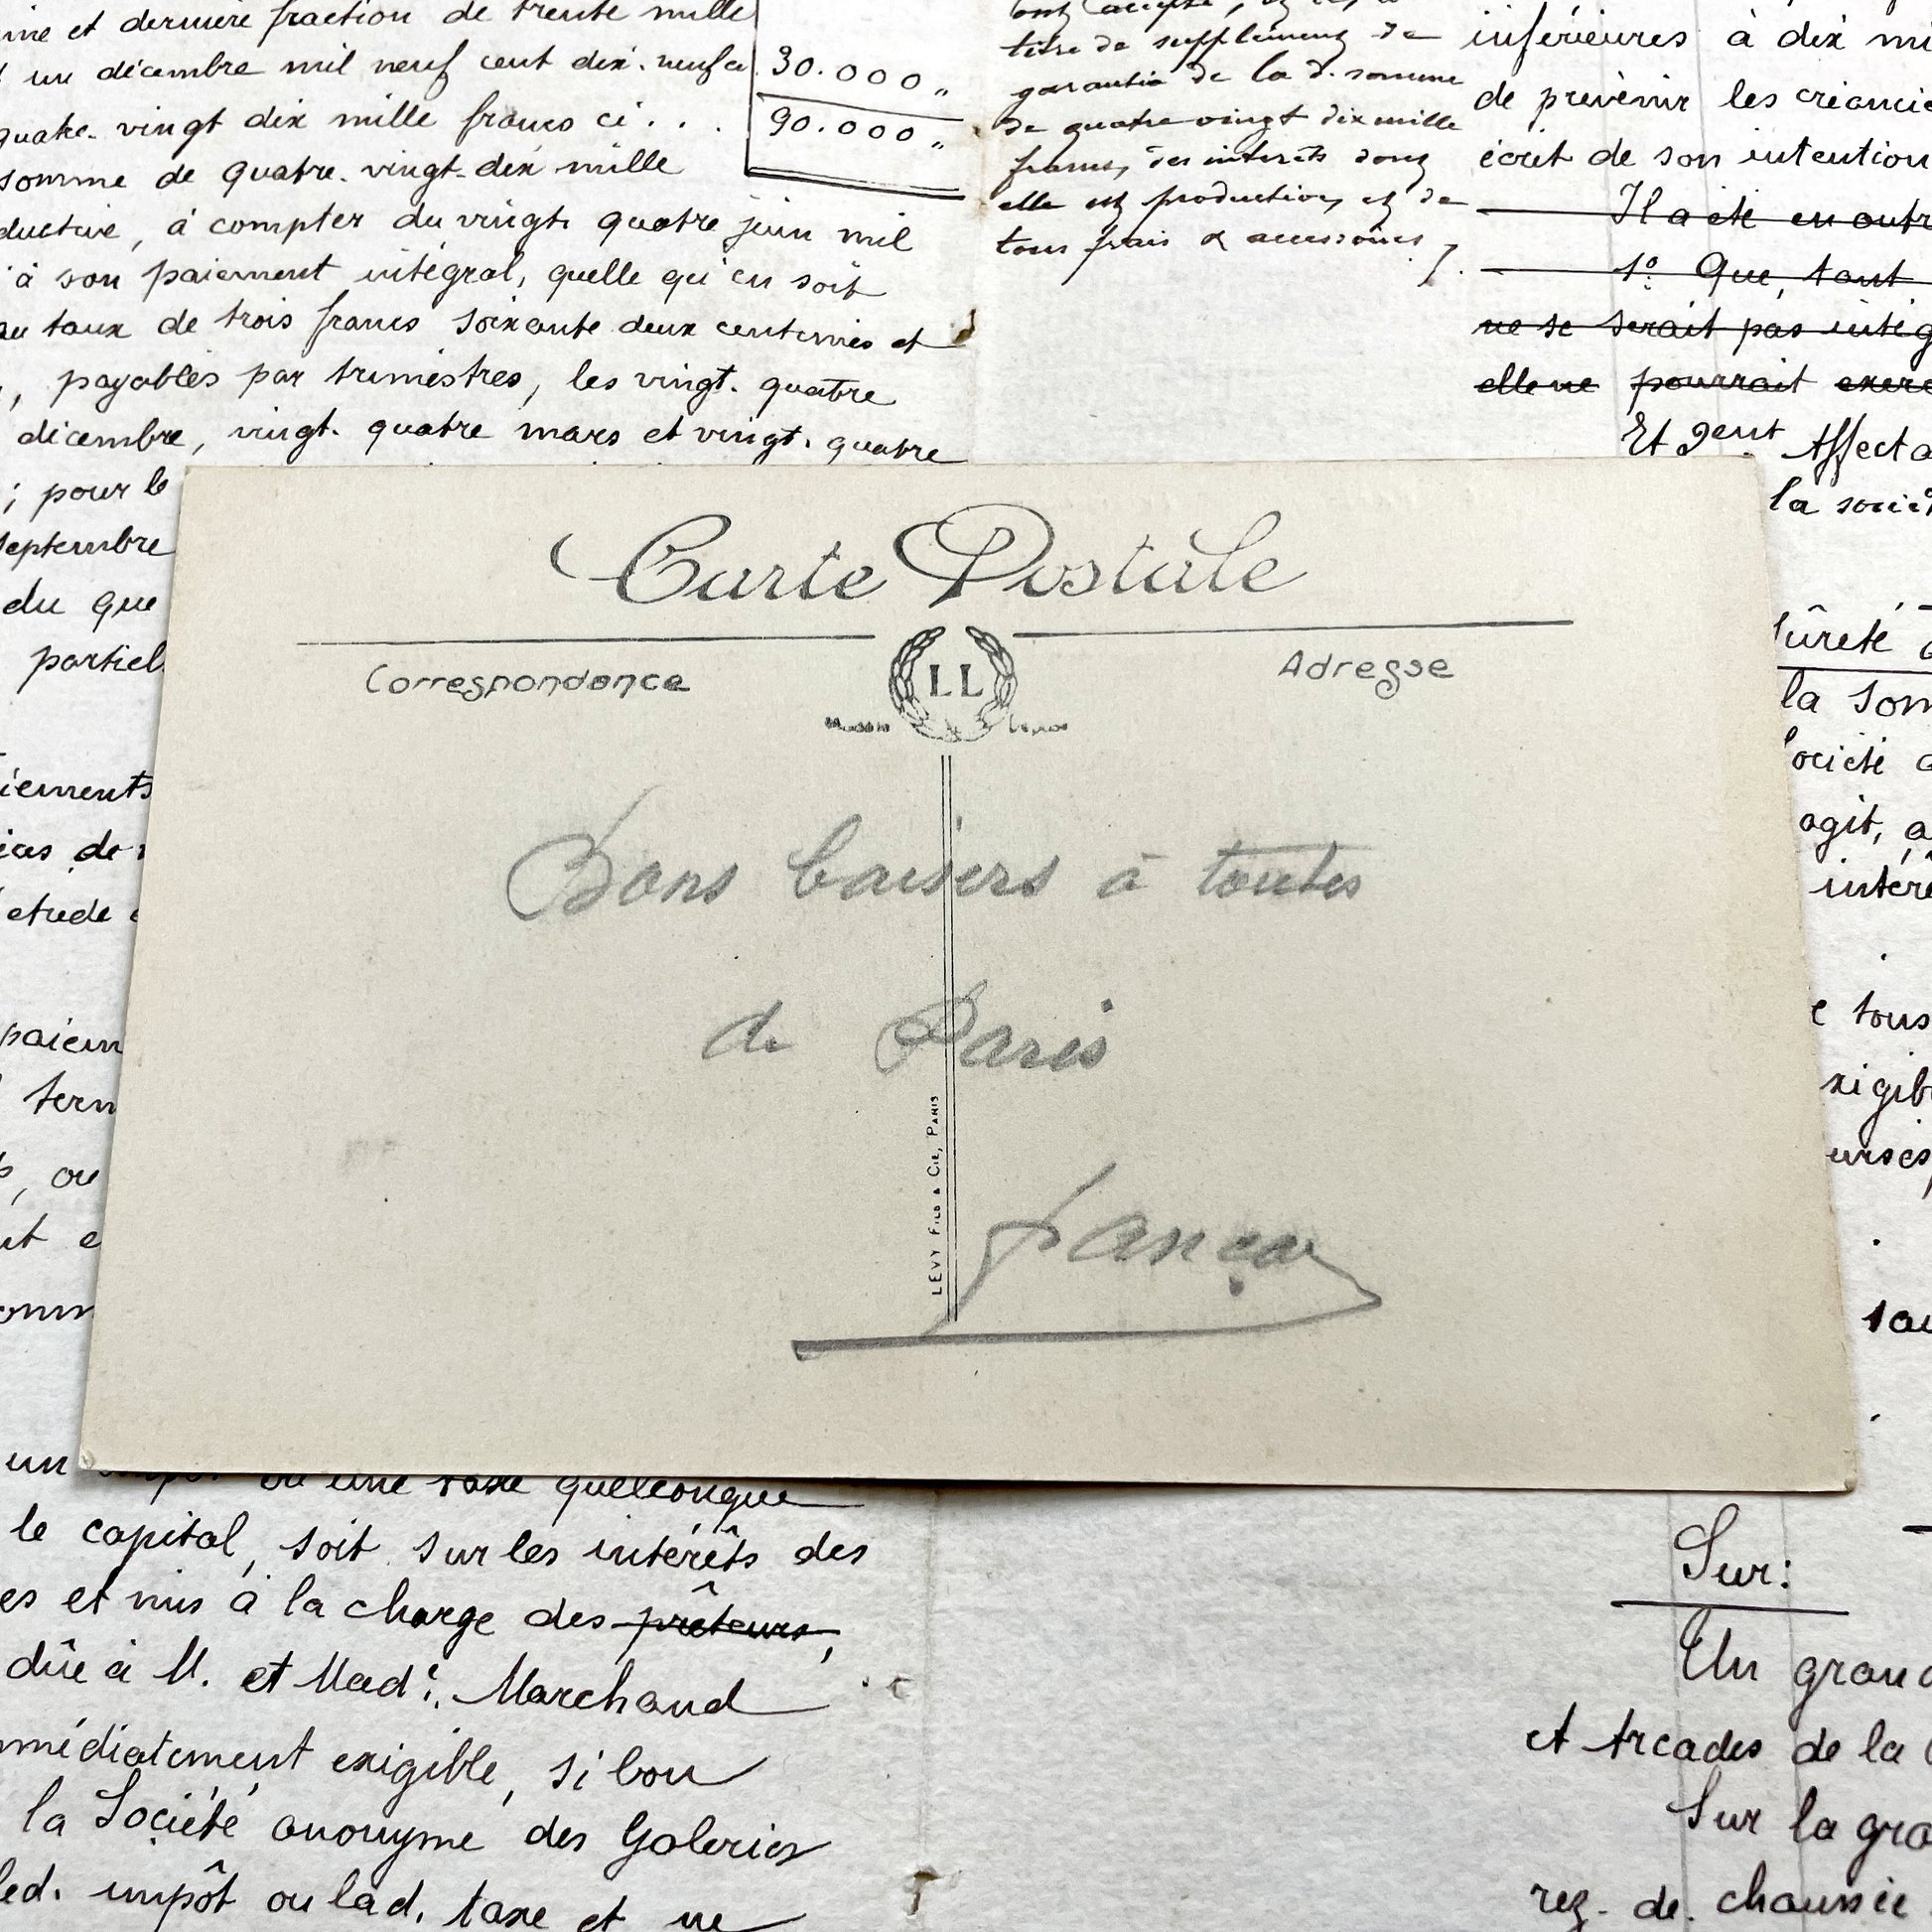 et dernière fraction de trente mille
un décembre mil neuf cent dix-neuf ci
30.000 "
quatre-vingt dix mille francs ci . . .
90.000 "
somme de quatre-vingt-dix mille
, à compter du vingt quatre juin mil
à son paiement intégral, quelle qu'en soit
au taux de trois francs soixante deux centimes et
, payables par trimestres, les vingt-quatre
décembre, vingt-quatre mars et vingt-quatre
; pour le
septembre
du que
partiel
iements
de
etude
paiem
term
, ou
titre de supplément de
garantie de la d. somme
de quatre vingt dix mille
francs, des intérêts dont
elle est production, et de
tous frais & accessoires /.
inférieures à dix
de prévenir les
écrit de son intention
Il a été en outre
1º Que, tant
ne se serait pas
elle ne pourrait
Et
la
sûreté
la
agit,
tous
Carte Postale
Correspondance
LL
Adresse
Bons baisers à toutes
de Paris
LÉVY FILS & CIE, PARIS
un ou une taxe quelconque
le capital, soit sur les intérêts des
es et mis à la charge des prêteurs,
dûe à M. et Made. Marchand
immédiatement exigible, si bon
la Société anonyme des Galeries
led. impôt ou lad. taxe et ne
Sur:
Un
et Arcades de la
Sur la
rez-de-chaussée